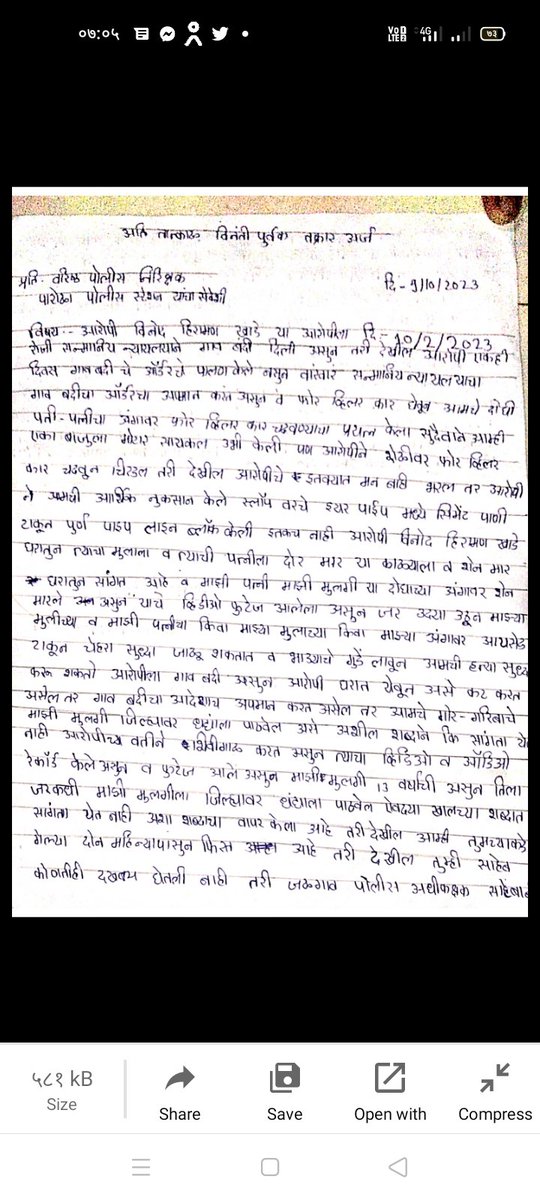 ०७:०५
VoD LTE 2 4G ७३
अति तात्काळ विनंती पुर्वक तक्रार अर्ज
प्रति- वरिष्ठ पोलीस निरिक्षक
दि - 9/10/2023
पारोळा पोलीस स्टेशन यांचा सेवेशी
विषय -- आरोपी विनोद हिरामण खाडे या आरोपीला दि - 10/2/2023
रोजी सन्मानिय न्यायालयाने गाव बंदी दिली असुन तरी देखील आरोपी एकही
दिवस गाव बंदी चे ऑर्डरचे पालण केले नसुन वारंवार सन्मानिय न्यायलयाचा
गाव बंदीचा ऑर्डरचा अपमान करत असुन व फोर व्हिलर कार घेवुन आमचे दोघी
पती-पत्नीचा अंगावर फोर व्हिलर कार चढवण्याचा प्रयत्न केला सुदैवाने आम्ही
एका बाजुला मोटार सायकल उभी केली पण आरोपीने शेळीवर फोर व्हिलर
कार चढवुन चिरडल तरी देखील आरोपीचे इतक्यात मन नाही भरल तर आरोपी
ने आमची आर्थिक नुकसान केले स्लॉप वरचे इयर पाईप मध्ये सिमेंट पाणी
टाकुन पुर्ण पाइप लाइन ब्लॉक केली इतकच नाही आरोपी विनोद हिरामण खाडे
घरातुन त्याचा मुलाला व त्याची पत्नीला दोर मार या काळ्याला व शेन मार
घरातुन सांगत आहे व माझी पत्नी माझी मुलगी या दोघाच्या अंगावर शेन
मारले असुन याचे व्हिडीओ फुटेज आलेला असुन जर उदया उठुन माझ्या
मुलीच्या व माझी पत्नीचा किंवा माझ्या मुलाच्या किंवा माझ्या अंगावर अॅसिड
टाकुन चेहरा सुध्दा जाळू शकतात व भाड्याचे गुंडे लावुन आमची हत्या सुध्दा
करू शकतो आरोपीला गाव बंदी असुन आरोपी घरात येवुन असे कट करत
असेल तर गाव बंदीचा आदेशाच अपमान करत असेल तर आमचे गोर-गरिबाचे
माझी मुलगी जिल्ह्यावर धंद्याला पाठवेल असे अशील शब्दाने कि सांगता येत
नाही आरोपीच्या वतीने शीवीगाळ करत असुन त्याचा व्हिडिओ व ऑडिओ
रेकॉर्ड केले असुन व फुटेज आले असुन माझी मुलगी 13 वर्षाची असुन तिला
जरकधी माझी मुलगीला जिल्ह्यावर धंद्याला पाठवेल ऐवढ्या खालच्या शब्दात
सांगता येत नाही अशा शब्दाचा वापर केला आहे तरी देखील आम्ही तुमच्याकडे
गेल्या दोन महिन्यापासुन फिरत आहे तरी देखील तुम्ही साहेब
कोणतीही दखल घेतली नाही तरी जळगाव पोलीस अधीक्षक साहेबांना
५८१ kB
Size
Share
Save
Open with
Compress